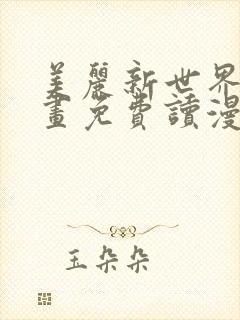 美麗新世界
畫免費讀漫
玉朵朵